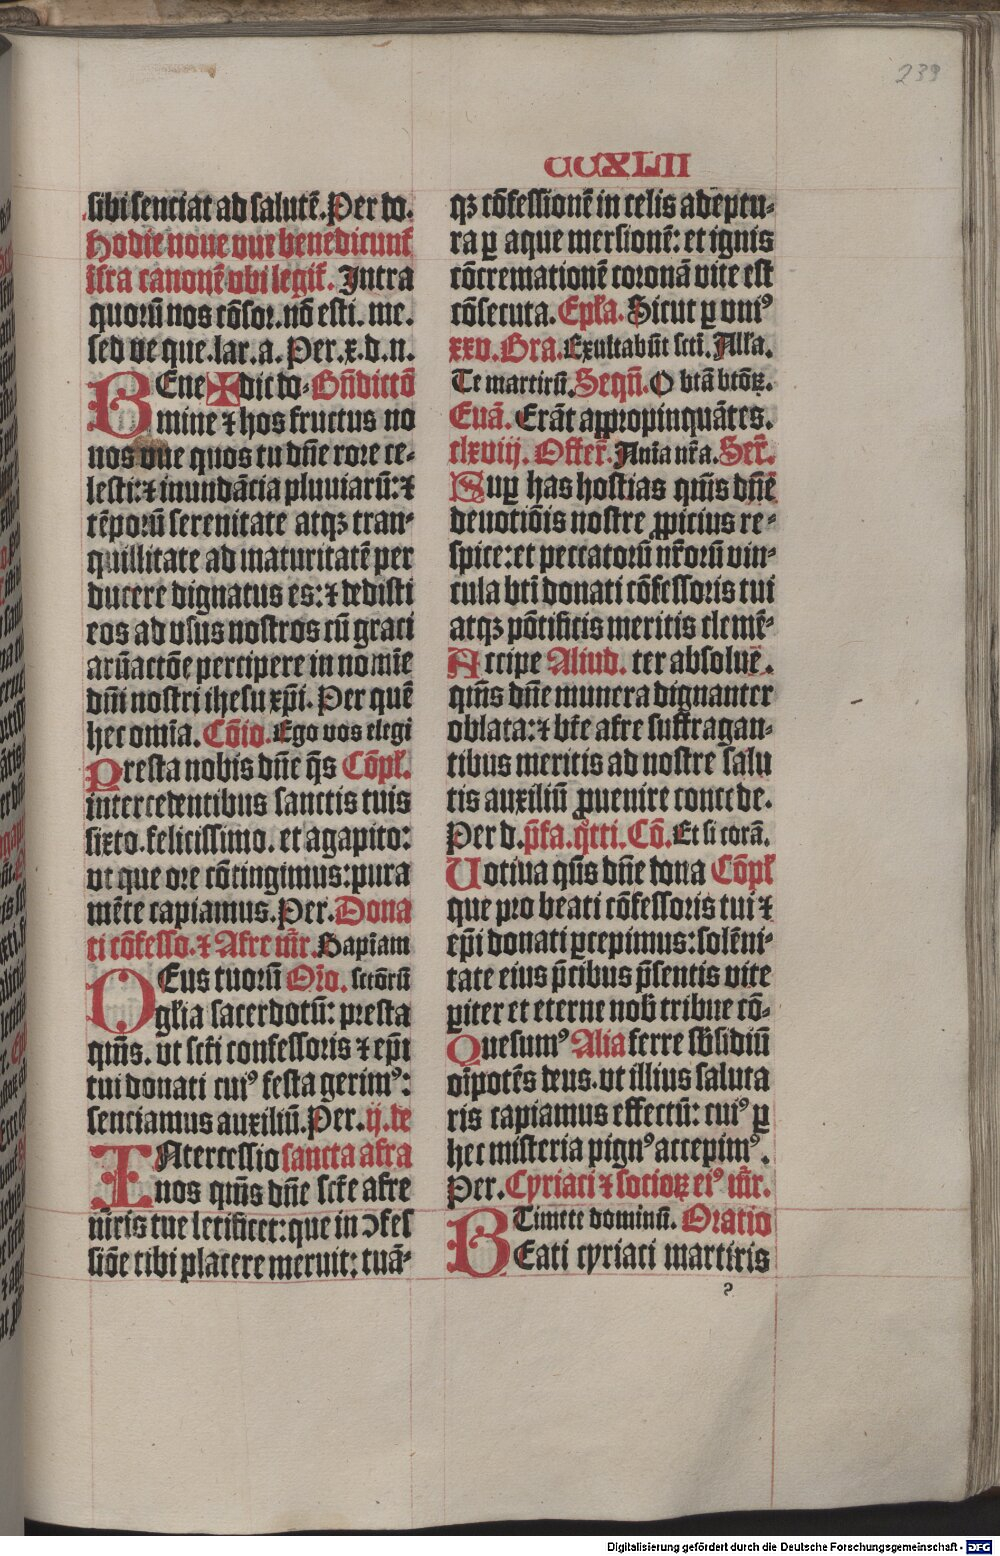 239
CCXLII
sibi senciat ad salutē. Per do.
Hodie noue vue benedicunt᷑
īfra canonē vbi legit᷑. Intra
quorū nos cōsor. nō esti. me.
sed ve que. lar. a. Per. x. d. n.
BEne✠dic do- Bn̄dictō
mine ⁊ hos fructus no
nos vue quos tu dn̄e rore ce-
lesti: ⁊ inundācia pluuiarū: ⁊
tēporū serenitate atqꝫ tran-
quillitate ad maturitatē per
ducere dignatus es: ⁊ dedisti
eos ad vsus nostros cū graci
arū actōe percipere in nomīe
dn̄i nostri ihesu xp̄i. Per quē
hec omīa. Cōīo. Ego vos elegi
Presta nobis dn̄e q̄s Cōpl̄.
intercedentibus sanctis tuis
sixto. felicissimo. et agapito:
vt que ore cōtingimus: pura
mēte capiamus. Per. Dona
ti cōfesso. ⁊ Afre mr̄. Sapīam
DEus tuorū Or̄o. sctōrū
gl̄ia sacerdotū: presta
qm̄s. vt scti confessoris ⁊ ep̄i
tui donati cuiꝰ festa gerimꝰ:
senciamus auxiliū. Per. ij. de
INtercessio sancta afra
nos qm̄s dn̄e scte afre
mr̄is tue letificet: que in ↄfes
siōe tibi placere meruit: tuā-
qꝫ cōfessionē in celis adeptu-
ra ꝑ aque mersionē: et ignis
cōcremationē coronā vite est
cōsecuta. Epl̄a. Sicut ꝑ vniꝰ
xxv. Gra. Exultabūt scti. All̄a.
Te martirū. Seqn̄. O btā btōꝝ.
Euā. Erāt appropinquātes.
clxviij. Offer̄. Anīa nr̄a. Ser̄.
Suꝑ has hostias qm̄s dn̄e
deuotiōis nostre ꝓpicius re-
spice: et peccatorū nr̄orū vin-
cula bti donati cōfessoris tui
atqꝫ pōtificis meritis clemē-
Accipe Aliud. ter absolue.
qm̄s dn̄e munera dignanter
oblata: ⁊ bte afre suffragan-
tibus meritis ad nostre salu
tis auxiliū ꝓuenire concede.
Per d. p̄fa. qͦtti. Cō. Et si corā.
Uotiua qs̄ dn̄e dona Cōpl̄
que pro beati cōfessoris tui ⁊
ep̄i donati ꝑcepimus: solēni-
tate eius p̄cibus p̄sentis vite
ꝑiter et eterne nob̄ tribue cō-
Quesumꝰ Alia ferre sb̄sidiū
oīpotēs deus. vt illius saluta
ris capiamus effectū: cuiꝰ ꝑ
hec misteria pignꝰ accepimꝰ.
Per. Cyriaci ⁊ socioꝝ eiꝰ mr̄.
Timete dominū. Oratio
BEati cyriaci martiris
Digitalisierung gefördert durch die Deutsche Forschungsgemeinschaft - DFG